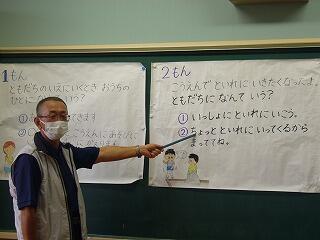 1もん
ともだちのいえにいくとき おうちの
ひとに
いう？
①
てきます
②
こうえんに あそびに
2もん
こうえんで といれに いきたくなったよ。
ともだちに なんて いう？
① いっしょに といれに いこう。
② ちょっと といれに いってくるから
まっててね。